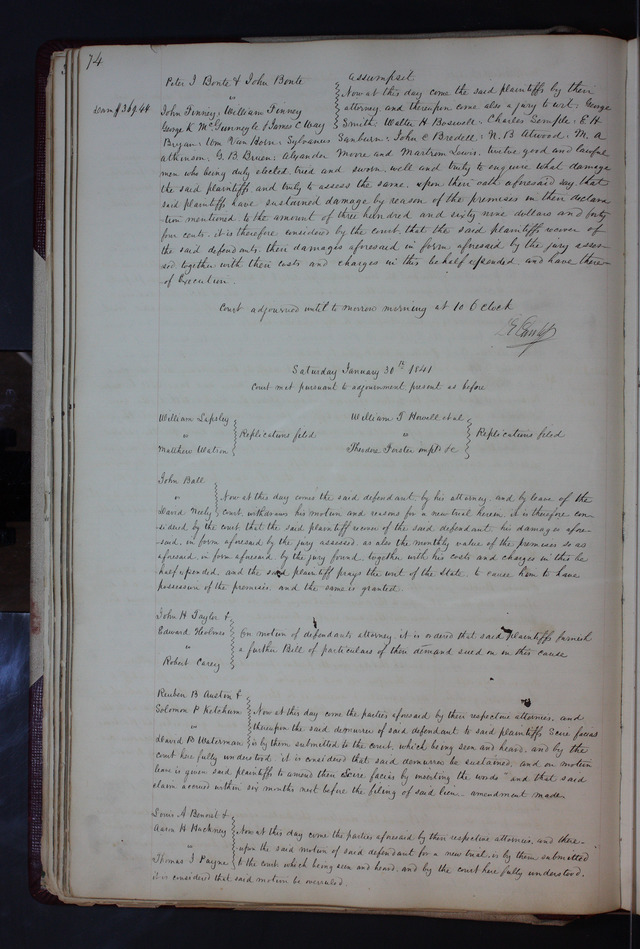 74
Peter J Bonte & John Bonte
Assumpsit
"
Now at this day come the said plaintiffs by their
dam $369.44
John Finney, William Finney
attorney and thereupon come also a jury to wit, George
George K McGunnegle & James C Way
Smith, Walter H Boswell, Charles Semple, E H
Bryan, Wm Van Horn, Sylvanus Sanburn, John C Bredell, N. B Atwood, M. A
Atkinson, G. B Bruen, Alexander Moore and Lewis, twelve good and lawful
men who being duly elected tried and sworn well and truly to enquire what damage
the said plaintiffs and truly to assess the same, upon their oath aforesaid say, that
said plaintiffs have sustained damage by reason of the premises in their declara
tion mentioned to the amount of three hundred and sixty nine dollars and forty
four cents. it is therefore considered by the court, that the said plaintiffs recover of
the said defendants, their damages aforesaid in form aforesaid by the jury asses
sed together with their costs and charges in this behalf expended, and have there
of Execution.
Court adjourned until to morrow morning at 10 O clock
Saturday January 30th 1841
Court met pursuant to adjournment present as before
William Lapsley
"
Matthew Watson
Replications filed
William T Howell et al
"
Theodore Forster impld &c
Replications filed
John Ball
"
Now at this day comes the said defendant, by his attorney and by leave of the
David Neely
court withdraws his motion and reasons for a new trial herein, it is therefore con
sidered by the court that the said plaintiff recover of the said defendant his damages afore
said, in form aforesaid by the jury assessed, as also the monthly value of the premises so as
aforesaid in form aforesaid by the jury found together with his costs and charges in this be
half expended, and the said plaintiff prays the writ of the State to cause him to have
possession of the premises, and the same is granted.
John H Taylor &
Edward Holmes
On motion of defendants attorney it is ordered that said plaintiffs furnish
"
a further Bill of particulars of their demand sued on in this cause
Robert Carey
Reuben B Austin &
Solomon P Ketchum
Now at this day come the parties aforesaid by their respective attornies, and
"
thereupon the said demurrer of said defendant to said plaintiffs Scire facias
David B Waterman
is by them submitted to the court, which being seen and heard, and by the
court here fully understood, it is considered that said demurrer be sustained, and on motion
leave is given said plaintiffs to amend their Scire facias by inserting the words "and that said
claim accrued within six months next before the filing of said lien" amendment made
Louis A Benoist &
Aaron H Hackney
Now at this day come the parties aforesaid by their respective attornies, and there
"
upon the said motion of said defendant for a new trial, is by them submitted
Thomas J Payne
to the court which being seen and heard, and by the court here fully understood,
it is considered that said motion be overruled.